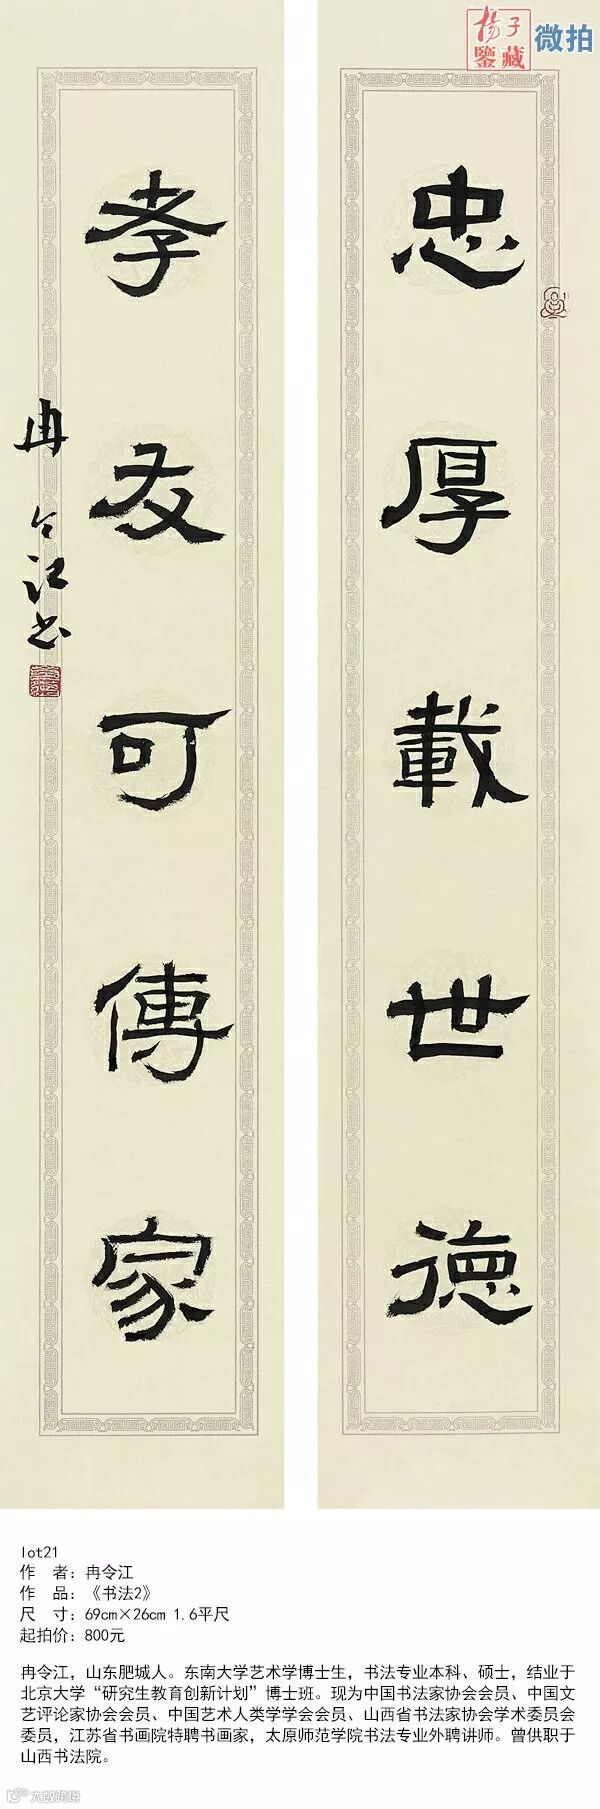 揚子
鑒藏
微拍
忠厚載世德
孝友可傳家
冉令江书
lot21
作 者：冉令江
作 品：《书法2》
尺 寸：69cm×26cm 1.6平尺
起拍价：800元
冉令江，山东肥城人。东南大学艺术学博士生，书法专业本科、硕士，结业于
北京大学“研究生教育创新计划”博士班。现为中国书法家协会会员、中国文
艺评论家协会会员、中国艺术人类学学会会员、山西省书法家协会学术委员会
委员，江苏省书画院特聘书画家，太原师范学院书法专业外聘讲师。曾供职于
山西书法院。
大威跨境